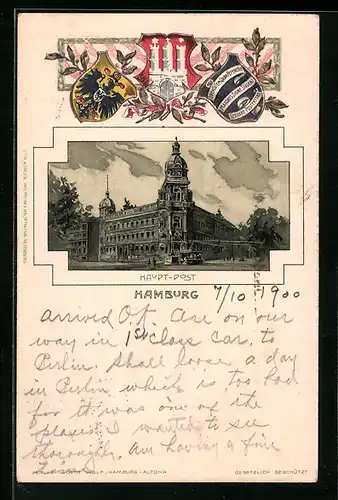 HAUPT-POST
HAMBURG 7/10 1900
arrived Of are on our
way in 1st class car, to
Berlin. Shall loose a day
in Berlin which is too bad
for it was one of the
places I wanted to see
thoroughly. am having a fine
HAMBURG-ALTONA GESETZLICH GESCHÜTZT